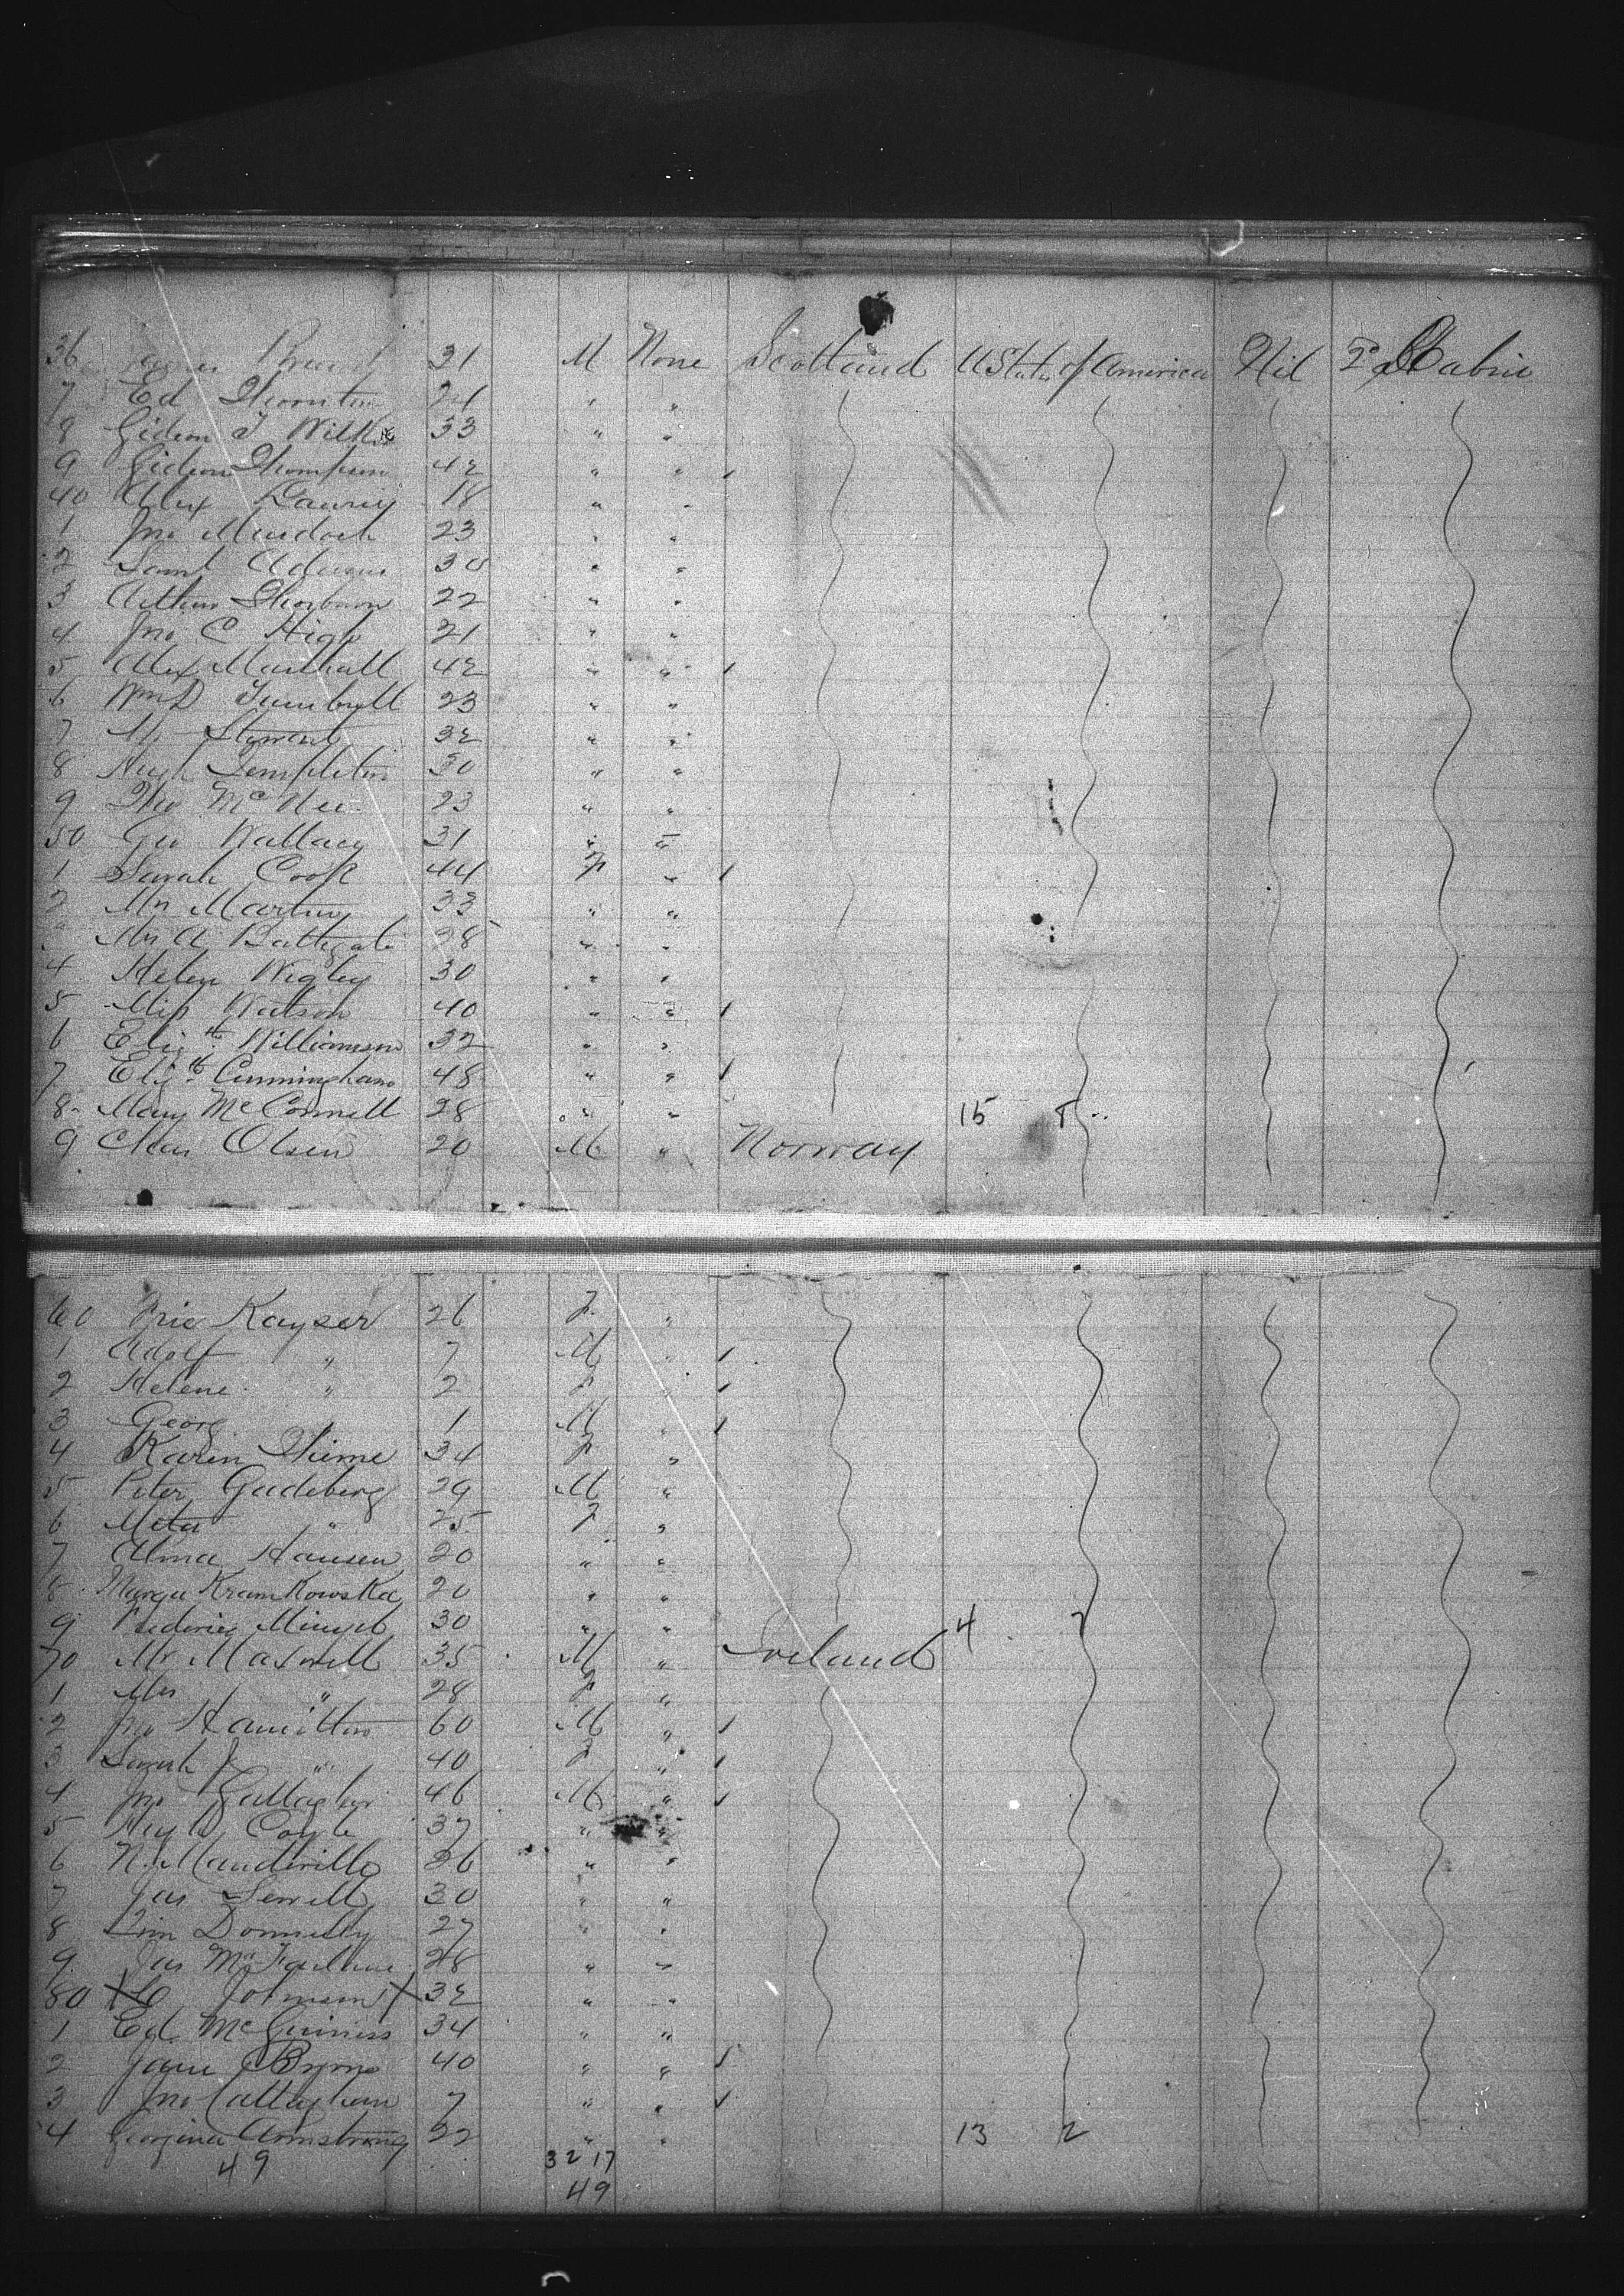 36 31 M None Scotland U States of America Nil 2nd Cabin
7 Ed Thornton 24 " "
8 Gideon T Wilkie 33 " "
9 Gideon Thompson 42 " "
40 Alex Laurie 18 " "
1 Jno Murdoch 23 " "
2 Saml Adams 30 " "
3 Arthur Thorburn 22 " "
4 Jno C High 21 " "
5 Alex Marshall 42 " "
6 Wm D Turnbull 23 " "
7 Stewart 32 " "
8 Hugh Templeton 30 " "
9 Tho McNee 23 " "
50 Geo Wallace 31 " "
1 Sarah Cook 44 F "
2 Mrs Martin 33 " "
3 Mrs A Bathgate 28 " "
4 Helen Wigley 30 " "
5 Miss Watson 40 " "
6 Elizth Williamson 32 " "
7 Elizth Cunningham 48 " "
8 Mary McConnell 28 " " 15 8
9 Olsen 20 M " Norway
60 Kayser 26 F "
1 Adolf " 7 M "
2 Helene " 2 F "
3 Georg 1 M "
4 Karin 34 F "
5 Peter Gadeberg 29 M "
6 Meta " 25 F "
7 Alma Hansen 20 " "
8 Kramkowska 20 " "
9 30 " " 4 7
70 Mr Maxwell 35 M " Ireland
1 Mrs " 28 F "
2 Jno Hamilton 60 M "
3 Sarah J " 40 F "
4 Jno Gallagher 46 M "
5 Hugh Coyle 37 " "
6 N. Mandeville 26 " "
7 Jas Sewell 30 " "
8 Donnelly 27 " "
9 Jas 28 " "
80 X Johnson X 32 " "
1 Ed McGuiness 34 " "
2 Jane Byrne 40 " "
3 Jno Callaghan 7 " "
4 Georgina Armstrong 22 " " 13 2
49 32 17
49